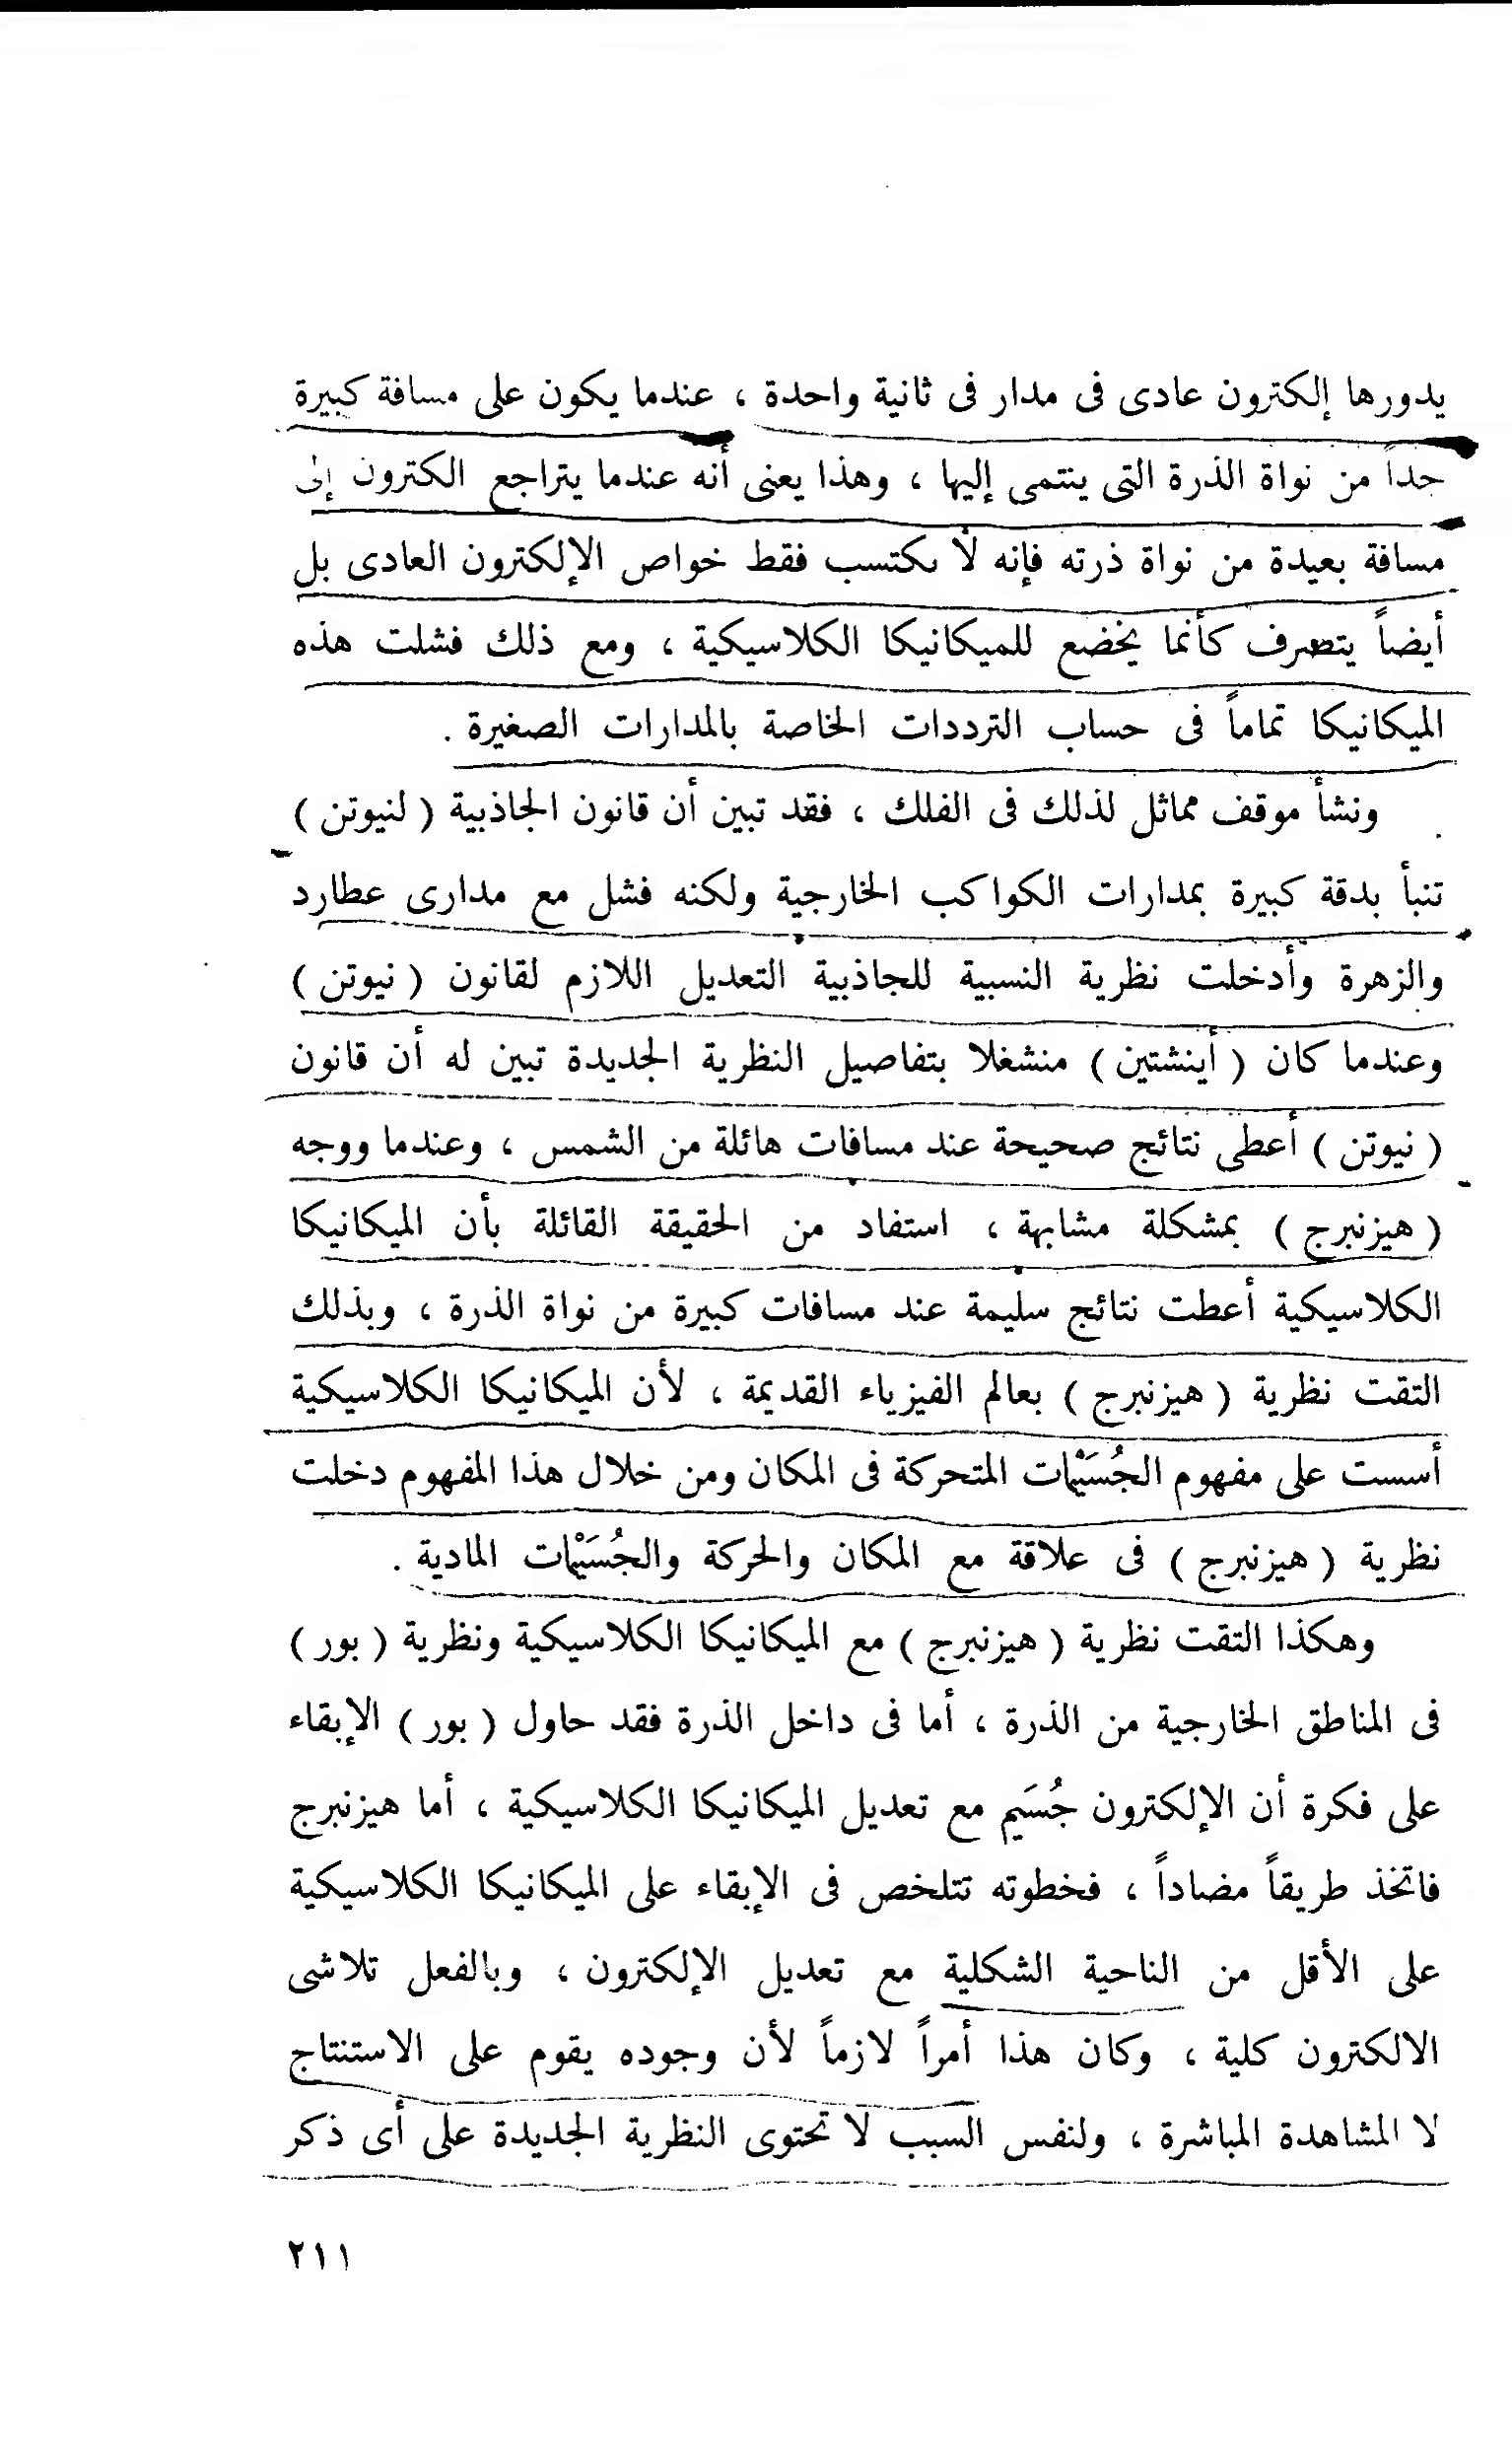 يدورها إلكترون عادى فى مدار فى ثانية واحدة ، عندما يكون على مسافة كبيرة
جداً من نواة الذرة التى ينتمى إليها ، وهذا يعنى أنه عندما يتراجع الكترون إلى
مسافة بعيدة من نواة ذرته فإنه لا يكتسب فقط خواص الإلكترون العادى بل
أيضاً يتصرف كأنما يخضع للميكانيكا الكلاسيكية ، ومع ذلك فشلت هذه
الميكانيكا تماماً فى حساب الترددات الخاصة بالمدارات الصغيرة .
ونشأ موقف مماثل لذلك فى الفلك ، فقد تبين أن قانون الجاذبية ( لنيوتن )
تنبأ بدقة كبيرة بمدارات الكواكب الخارجية ولكنه فشل مع مدارى عطارد
والزهرة وأدخلت نظرية النسبية للجاذبية التعديل اللازم لقانون ( نيوتن )
وعندما كان ( أينشتين ) منشغلا بتفاصيل النظرية الجديدة تبين له أن قانون
( نيوتن ) أعطى نتائج صحيحة عند مسافات هائلة من الشمس ، وعندما ووجه
( هيزنبرج ) بمشكلة مشابهة ، استفاد من الحقيقة القائلة بأن الميكانيكا
الكلاسيكية أعطت نتائج سليمة عند مسافات كبيرة من نواة الذرة ، وبذلك
التقت نظرية ( هيزنبرج ) بعالم الفيزياء القديمة ، لأن الميكانيكا الكلاسيكية
أسست على مفهوم الجُسَيْمات المتحركة فى المكان ومن خلال هذا المفهوم دخلت
نظرية ( هيزنبرج ) فى علاقة مع المكان والحركة والجُسَيْمات المادية .
وهكذا التقت نظرية ( هيزنبرج ) مع الميكانيكا الكلاسيكية ونظرية ( بور )
فى المناطق الخارجية من الذرة ، أما فى داخل الذرة فقد حاول ( بور ) الإبقاء
على فكرة أن الإلكترون جُسَيم مع تعديل الميكانيكا الكلاسيكية ، أما هيزنبرج
فاتخذ طريقاً مضاداً ، فخطوته تتلخص فى الإبقاء على الميكانيكا الكلاسيكية
على الأقل من الناحية الشكلية مع تعديل الإلكترون ، وبالفعل تلاشى
الالكترون كلية ، وكان هذا أمراً لازماً لأن وجوده يقوم على الاستنتاج
لا المشاهدة المباشرة ، ولنفس السبب لا تحتوى النظرية الجديدة على أى ذكر
٢١١